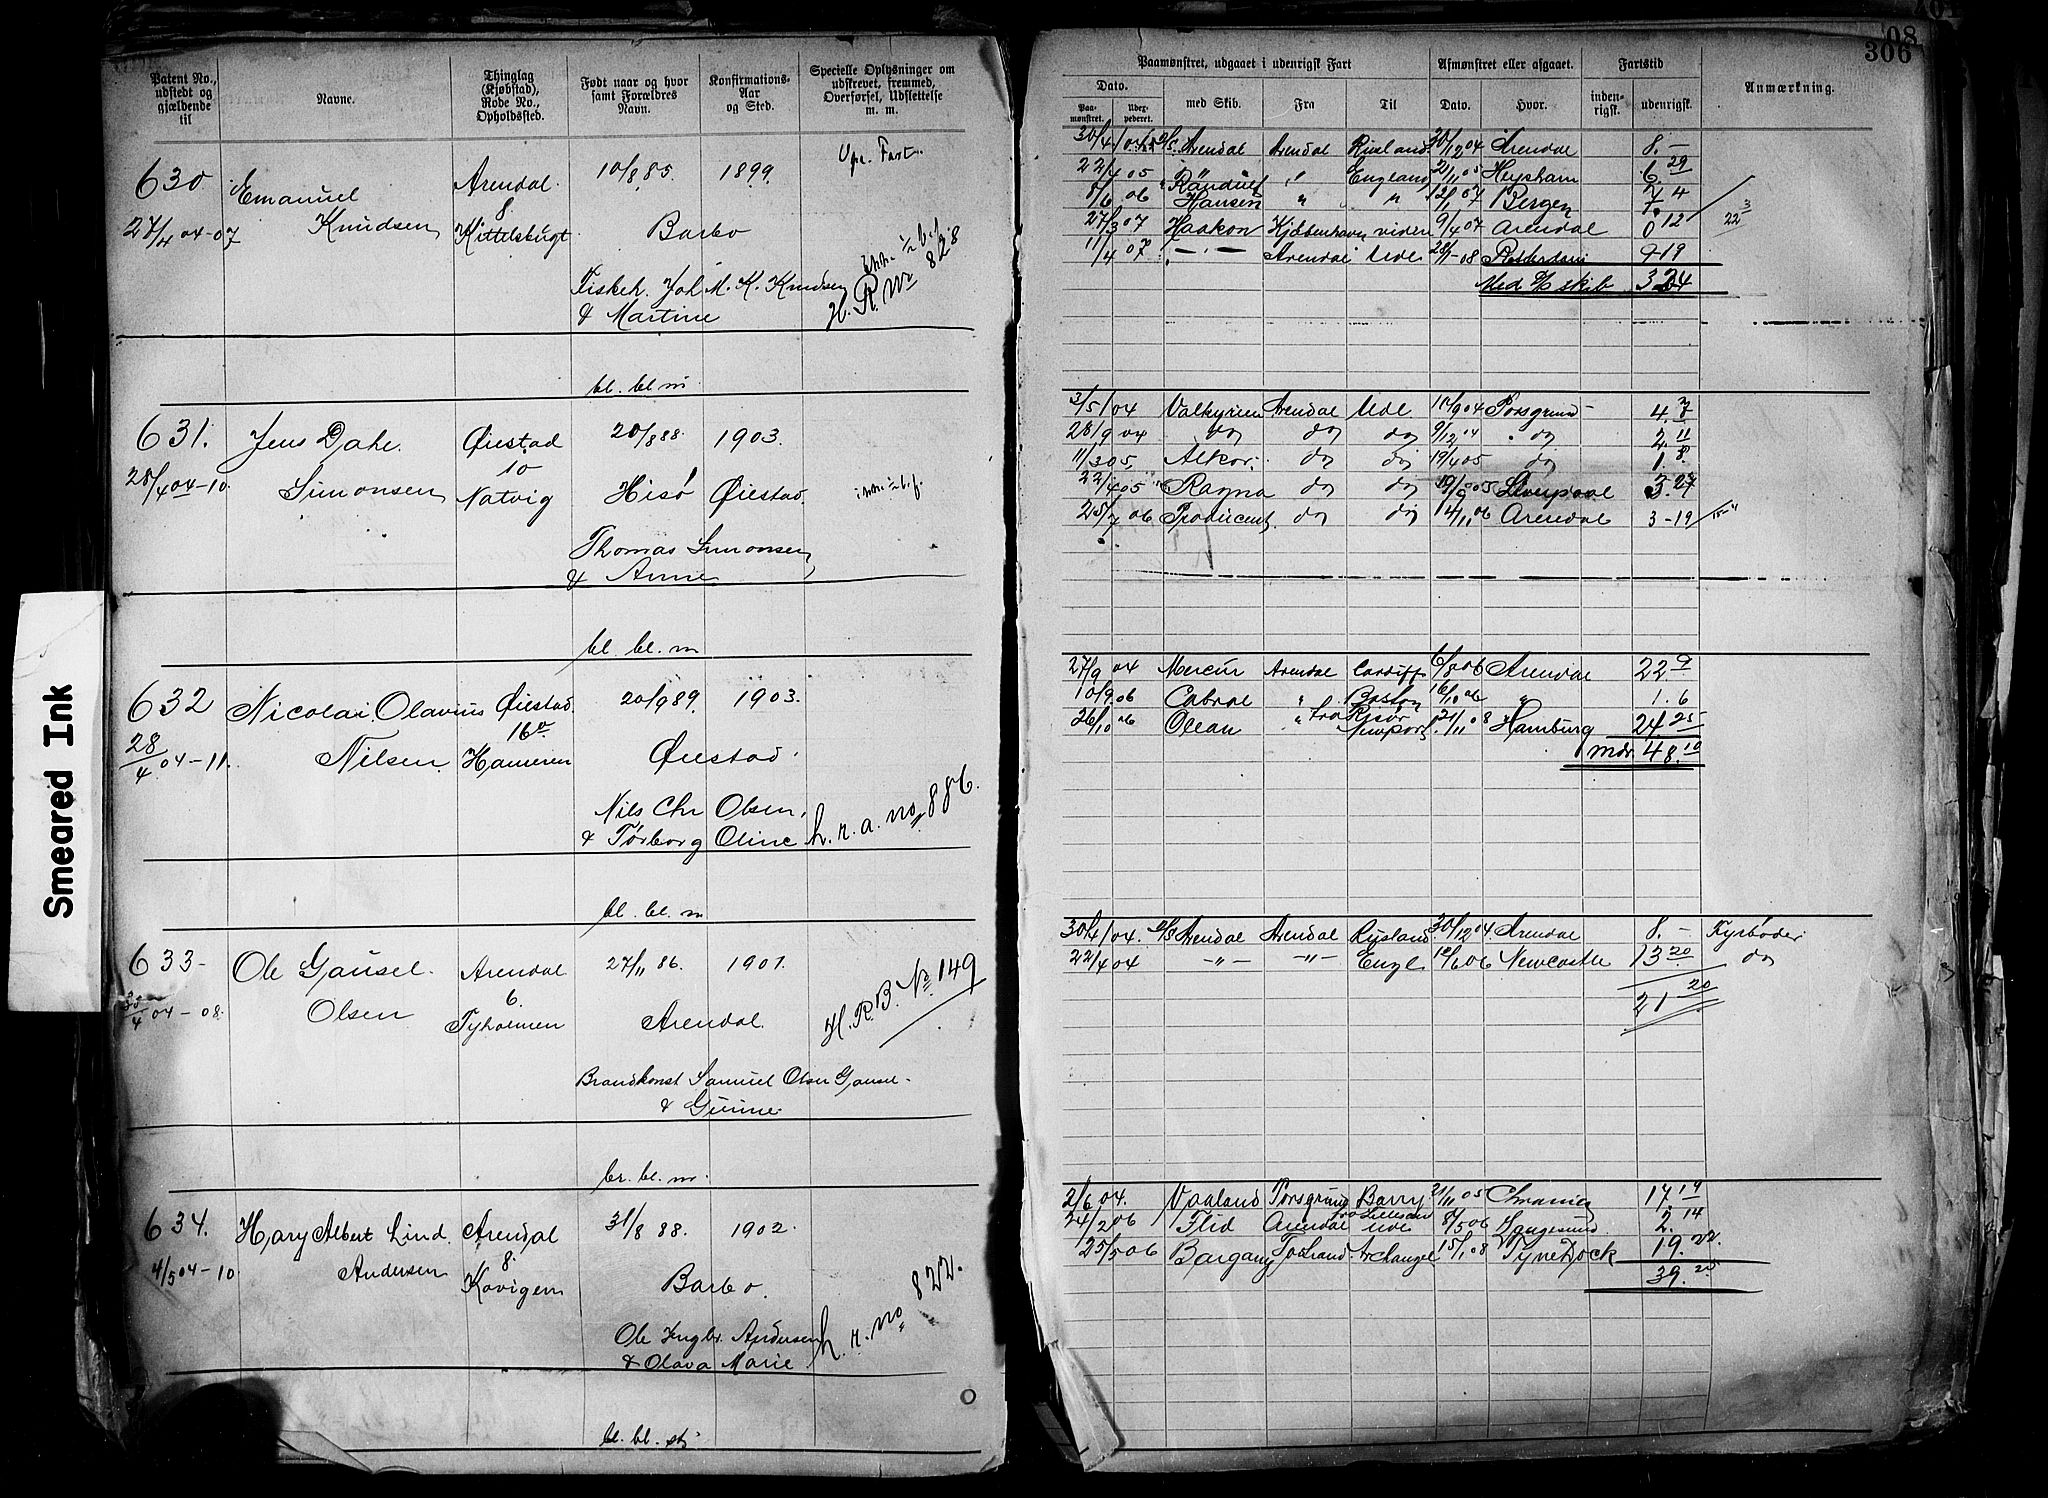 Smeared Ink
Patent No., udstedt og gjældende til
Navne.
Thinglag (Kjøbstad), Rode No., Opholdssted.
Født naar og hvor samt Forældres Navn.
Konfirmations-Aar og Sted.
Specielle Oplysninger om udskrevet, fremmed, Overførsel, Udslettelse m. m.
630 Emanuel Arendal 10/8 85. 1899.
27/4 04-07 Knudsen 8 Kittelsbugt Barbo
Fiskeh. Joh M. K. Knudsen
& Martine
H. R. No 828
bl. bl. m
631. Jens Dahl Øiestad 20/8 88. 1903.
10
28/4 04-10. Simonsen Natvig Hisø Øiestad.
Thomas Simonsen
& Anne
bl. bl. m
632 Nicolai Olavius Øiestad 20/9 89. 1903.
16
28/4 04-11. Nilsen Øiestad.
Nils Chr Olsen,
& Torborg Oline h. r. a. no 886.
bl. bl. m
633 Ole Gausel Arendal 27/11 86. 1901.
6.
04-08. Olsen Tyholmen Arendal. H. R. B. No 149
Samuel Olsen Gausel
& Gunne
br. bl. m.
634. Hary Albert Lind Arendal 31/8 88. 1902.
8.
4/5 04-10 Andersen Kovigen Barbo.
Ole Ingbr. Andersen
& Olava Marie h. r. no 822.
bl. bl.
O
08
306
Paamønstret, udgaaet i udenrigsk Fart
Afmønstret eller afgaaet.
Fartstid
Anmærkning.
Dato.
Paa-mønstret.
med Skib.
Fra
Til
Dato.
Hvor.
inden-rigsk.
udenrigsk.
30/4 04 D/S Arendal Arendal Rusland 30/12 04 Arendal 8.-
22/4 05 " " England 2/11 05 Heysham 6.29
8/6 06 Randulf Hansen " " 12/1 07 Bergen 7.4
27/3 07 Haakon Kjøbenhavn videre 9/4 07 Arendal 0 12
11/4 07 -"- Arendal Ude 28/1-08 Rotterdam 9-19
Med D/S skib
3/5 04 Valkyrien Arendal Ude 10/9 04 Porsgrund 4.7
28/9 04 do do do 9/12 04 do 2.11
11/3 05 Alkor. do do 19/4 05 do 1.8.
22/4 05 Ragna do do 19/9 05 Liverpool 3.27
25/7 06 Producent do do 14/11 06 Arendal 3-19
27/9 04 Mercur Arendal Cardiff 6/8 06 Arendal 22 9
10/9 06 Cabral " Boston 16/10 06 " 1.6
26/10 06 Ocean " fra Risør Newport 21/11 08 Hamburg 24.25
mdr. 48.10
30/4 04. D/S Arendal Arendal Rusland 30/12 04. Arendal 8.- Fyrbøder
22/4 04 -"- -"- Engl 12/6 06 Newcastle 13 20 do
21 20
2/6 04. Vaaland Porsgrund Barry 21/11 05 17.19
24/2 06 Flid Arendal Ude 8/5 06 Langesund 2.14
25/5 06 Bargany Archangel 15/1 08 Tyne Dock 19.22.
39.25